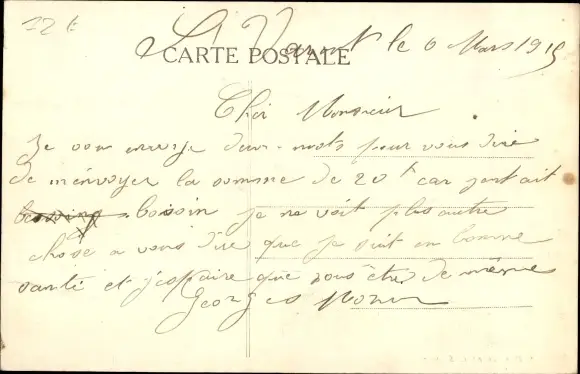 12 t
le 6 Mars 1915
CARTE POSTALE
Cher Monsieur
Je vous envoie deux mots pour vous dire
de m'envoyer la somme de 20 f car jent ait
boisoin je ne voit plus autre
chose a vous dire que je suit en bonne
santé et j'espaire que vous ête de même
Georges